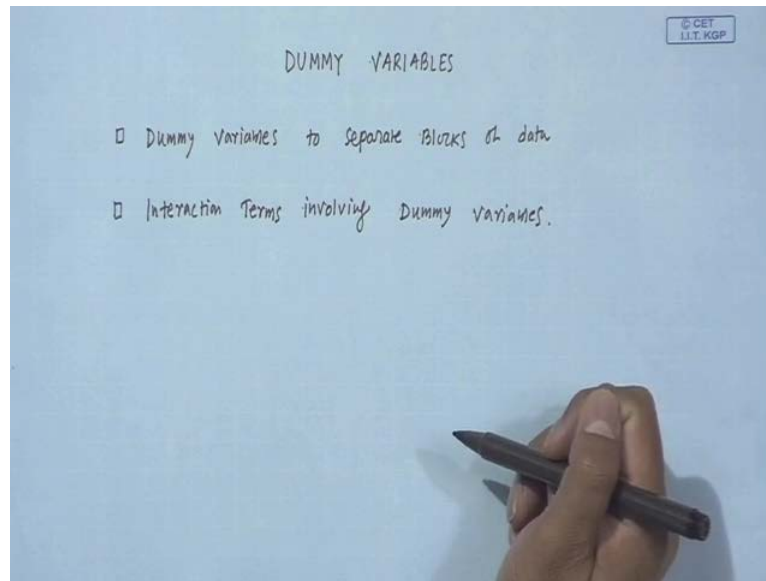 © CET
I.I.T. KGP
DUMMY VARIABLES
Dummy Variables to Separate Blocks of data
Interaction Terms involving Dummy variables.